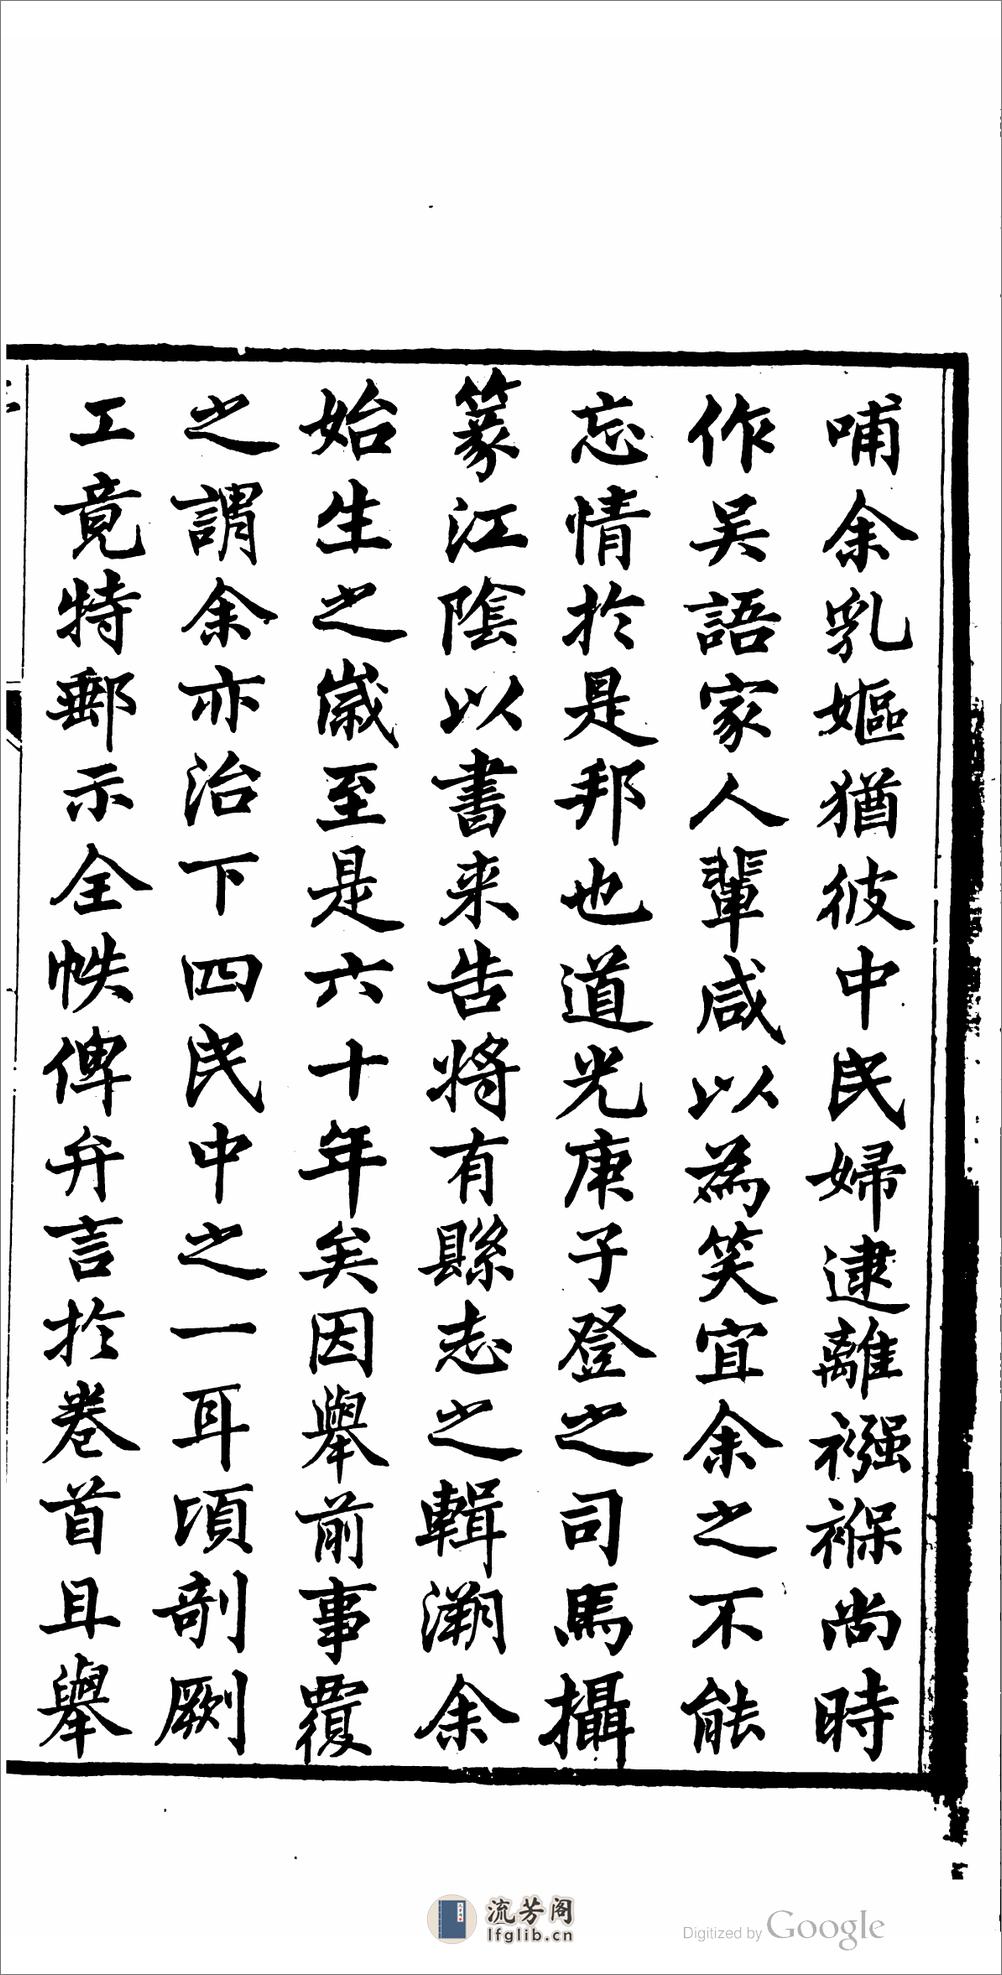 哺余乳嫗猶彼中民婦逮離襁褓尚時
作吴語家人輩咸以為笑宜余之不能
忘情於是邦也道光庚子登之司馬攝
篆江陰以書来告將有縣志之輯溯余
始生之歲至是六十年矣因舉前事覆
之謂余亦治下四民中之一耳頃剞劂
工竟特郵示全帙俾弁言於卷首且舉
流芳阁
lfglib.cn
Digitized by Google